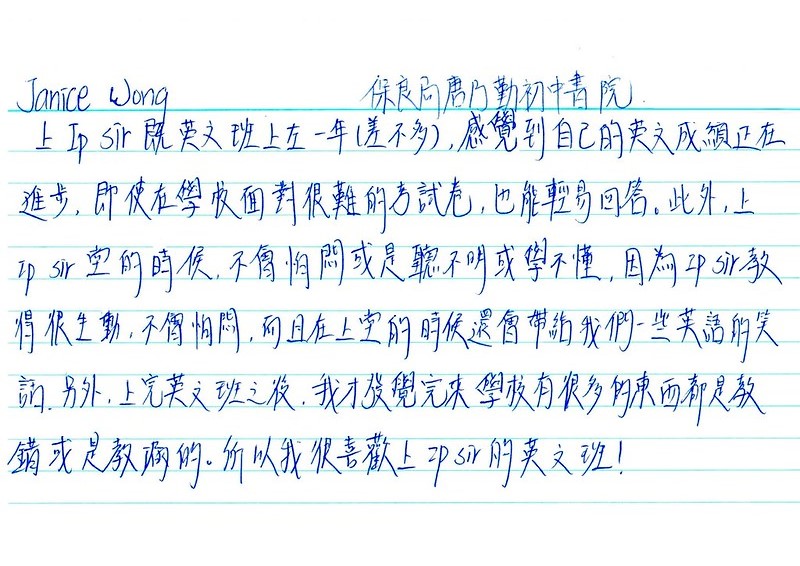 Janice Wong 保良局唐乃勤初中書院
上 Ip sir 既英文班上左一年(差不多), 感覺到自己的英文成績正在
進步, 即使在學校面對很難的考試卷, 也能輕易回答。此外, 上
Ip sir 堂的時候, 不會怕悶或是聽不明或學不懂, 因為 Ip sir 教
得很生動, 不會怕悶, 而且在上堂的時候還會帶給我們一些英語的笑
話. 另外, 上完英文班之後, 我才發覺完來學校有很多的東西都是教
錯或是教漏的。所以我很喜歡上 Ip sir 的英文班!